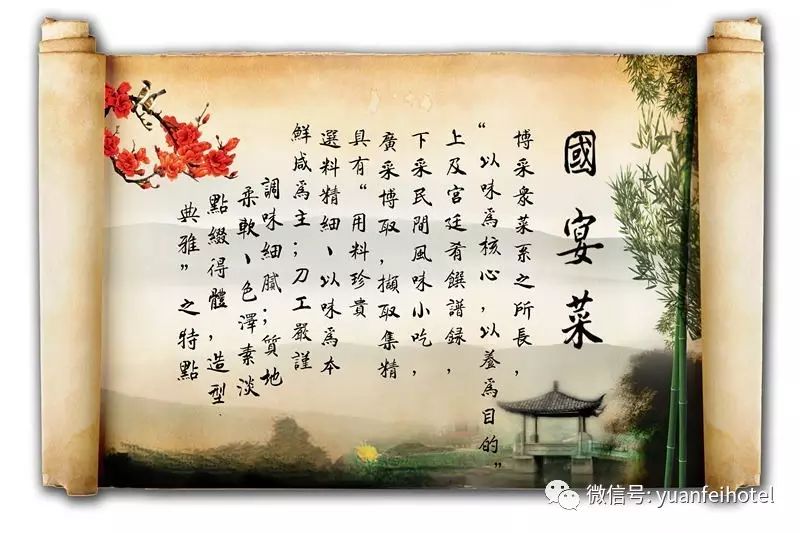 國宴菜
博采衆菜系之所長，
“以味爲核心，以養爲目的”
上及宮廷肴饌譜録，
下采民間風味小吃，
廣采博取，擷取集精
具有“用料珍貴
選料精細、以味爲本
鮮咸爲主；刀工嚴謹
調味細膩；質地
柔軟、色澤素淡
點綴得體，造型
典雅”之特點
微信号: yuanfeihotel